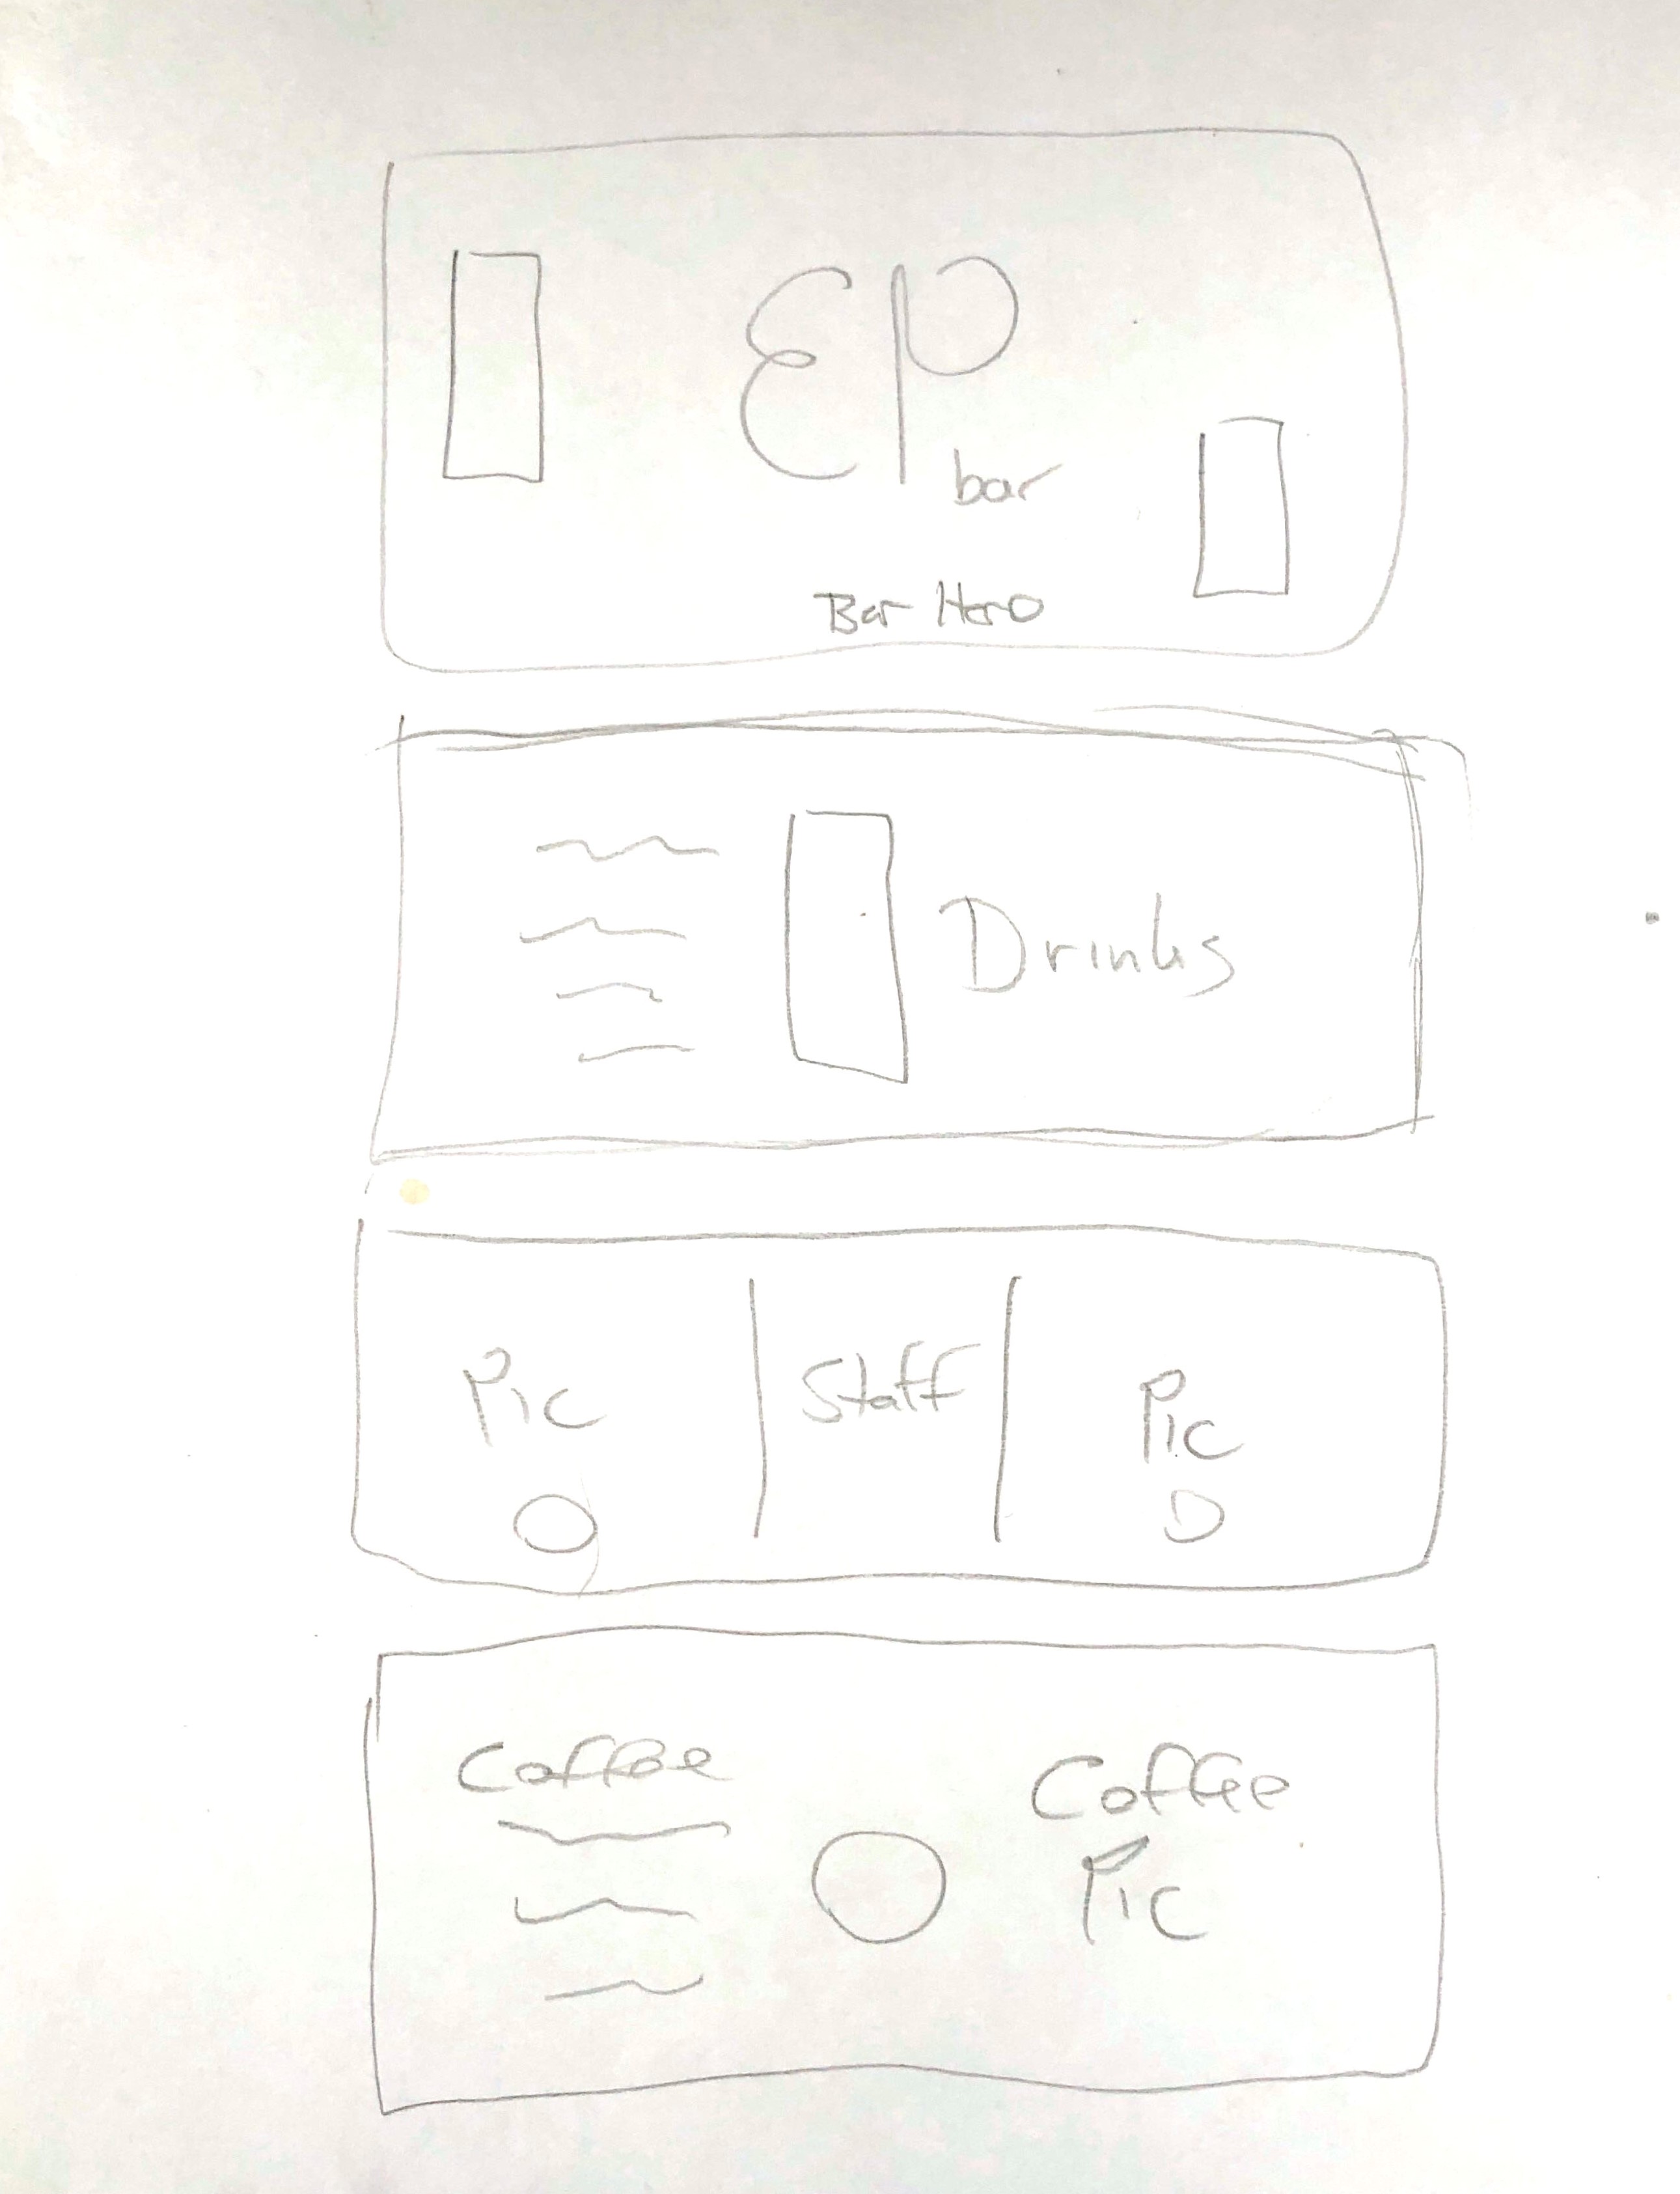 EP
bar
Bar Hero
Drinks
Pic
Staff
Pic
Coffee
Coffee
Pic